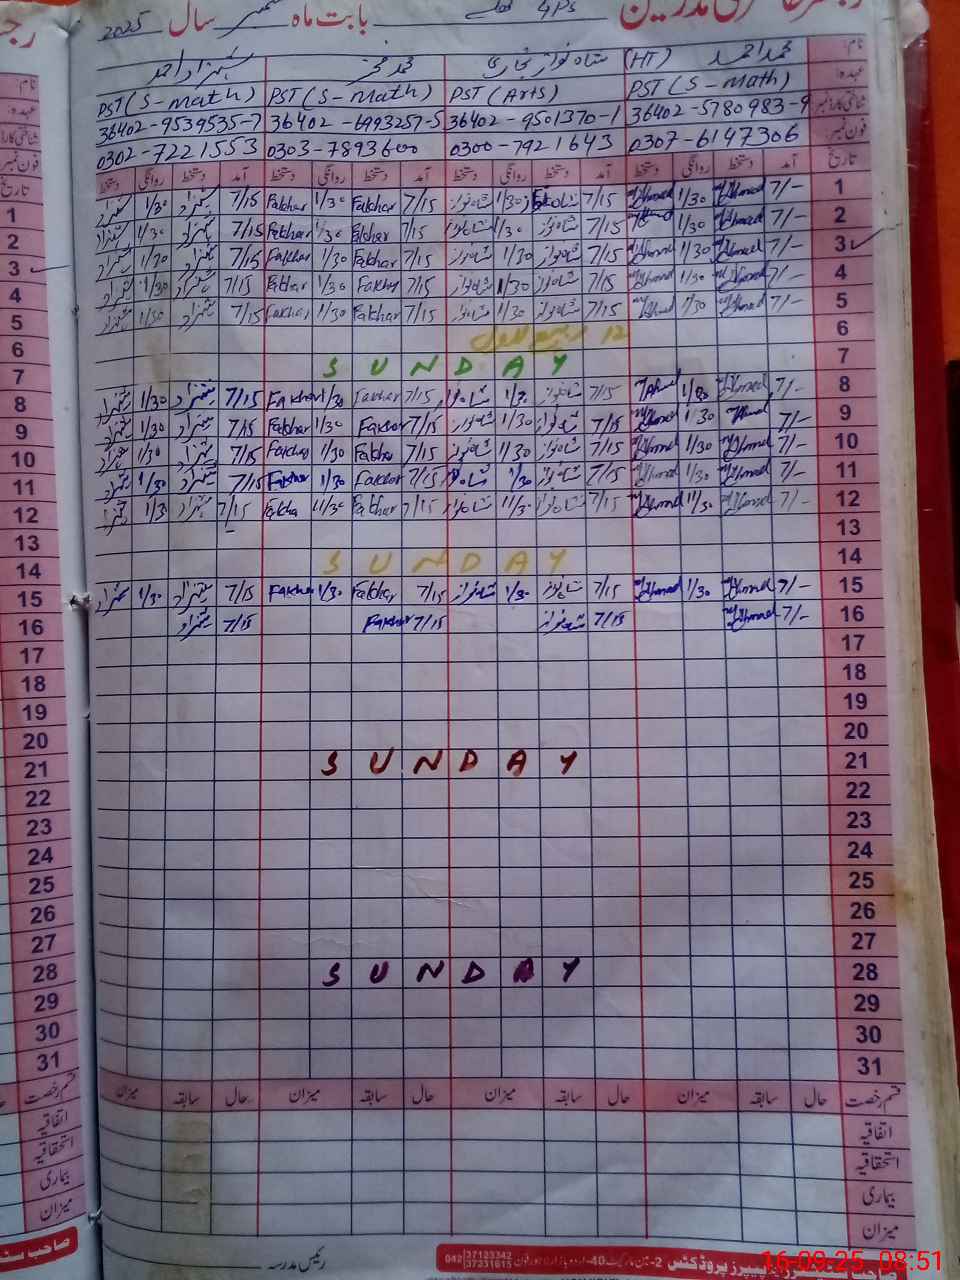 بابت ماہ ستمبر سال 2025
نام:
محمد احمد (HT)
شاہ نواز
محمد فخر
شہزاد احمد
عہدہ:
PST (S-Math)
PST (Arts)
PST (S-Math)
PST (S-Math)
36402-5780983-9
36402-9501370-1
36402-6993257-5
36402-9539535-7
فون نمبر:
0307-6147306
0300-7921643
0303-7893600
0302-7221553
تاریخ آمد دستخط روانگی دستخط آمد دستخط روانگی دستخط آمد دستخط روانگی دستخط آمد دستخط روانگی دستخط
1 7/- M Ahmed 1/30 M Ahmed 7/15 شاہنواز 1/30 شاہنواز 7/15 Fakhar 1/30 Fakhar 7/15 شہزاد 1/30 شہزاد
2 7/- M Ahmed 1/30 M Ahmed 7/15 شاہنواز 1/30 شاہنواز 7/15 Fakhar 1/30 Fakhar 7/15 شہزاد 1/30 شہزاد
3 7/- M Ahmed 1/30 M Ahmed 7/15 شاہنواز 1/30 شاہنواز 7/15 Fakhar 1/30 Fakhar 7/15 شہزاد 1/30 شہزاد
4 7/- M Ahmed 1/30 M Ahmed 7/15 شاہنواز 1/30 شاہنواز 7/15 Fakhar 1/30 Fakhar 7/15 شہزاد 1/30 شہزاد
5 7/- M Ahmed 1/30 M Ahmed 7/15 شاہنواز 1/30 شاہنواز 7/15 Fakhar 1/30 Fakhar 7/15 شہزاد 1/30 شہزاد
6 12 ربیع الاول
7 SUNDAY
8 7/- M Ahmed 1/30 M Ahmed 7/15 شاہنواز 1/30 شاہنواز 7/15 Fakhar 1/30 Fakhar 7/15 شہزاد 1/30 شہزاد
9 7/- M Ahmed 1/30 M Ahmed 7/15 شاہنواز 1/30 شاہنواز 7/15 Fakhar 1/30 Fakhar 7/15 شہزاد 1/30 شہزاد
10 7/- M Ahmed 1/30 M Ahmed 7/15 شاہنواز 1/30 شاہنواز 7/15 Fakhar 1/30 Fakhar 7/15 شہزاد 1/30 شہزاد
11 7/- M Ahmed 1/30 M Ahmed 7/15 شاہنواز 1/30 شاہنواز 7/15 Fakhar 1/30 Fakhar 7/15 شہزاد 1/30 شہزاد
12 7/- M Ahmed 11/30 M Ahmed 7/15 شاہنواز 11/30 شاہنواز 7/15 Fakhar 11/30 Fakha 7/15 شہزاد 1/30 شہزاد
13
14 SUNDAY
15 7/- M Ahmed 1/30 M Ahmed 7/15 شاہنواز 1/30 شاہنواز 7/15 Fakhar 1/30 Fakhar 7/15 شہزاد 1/30 شہزاد
16 7/- M Ahmed 7/15 شاہنواز 7/15 Fakhar 7/15 شہزاد
17
18
19
20
21 SUNDAY
22
23
24
25
26
27
28 SUNDAY
29
30
31
قسم رخصت حال سابقہ میزان حال سابقہ میزان حال سابقہ میزان حال سابقہ میزان
اتفاقیہ
استحقاقیہ
بیماری
میزان
رئیس مدرسہ
37123342
042 37231615
16-09-25 08:51